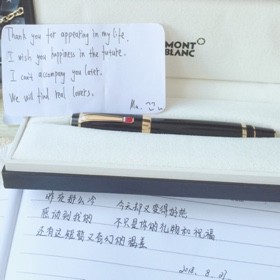 Thank you for appearing in my life.
I wish you happiness in the future.
I can't accompany you later.
We will find real lovers.
MONT
BLANC
今天却又变得
感动到我的 不只是你的礼物和祝福
还有这短暂又奇幻的福莲
2018. 8.